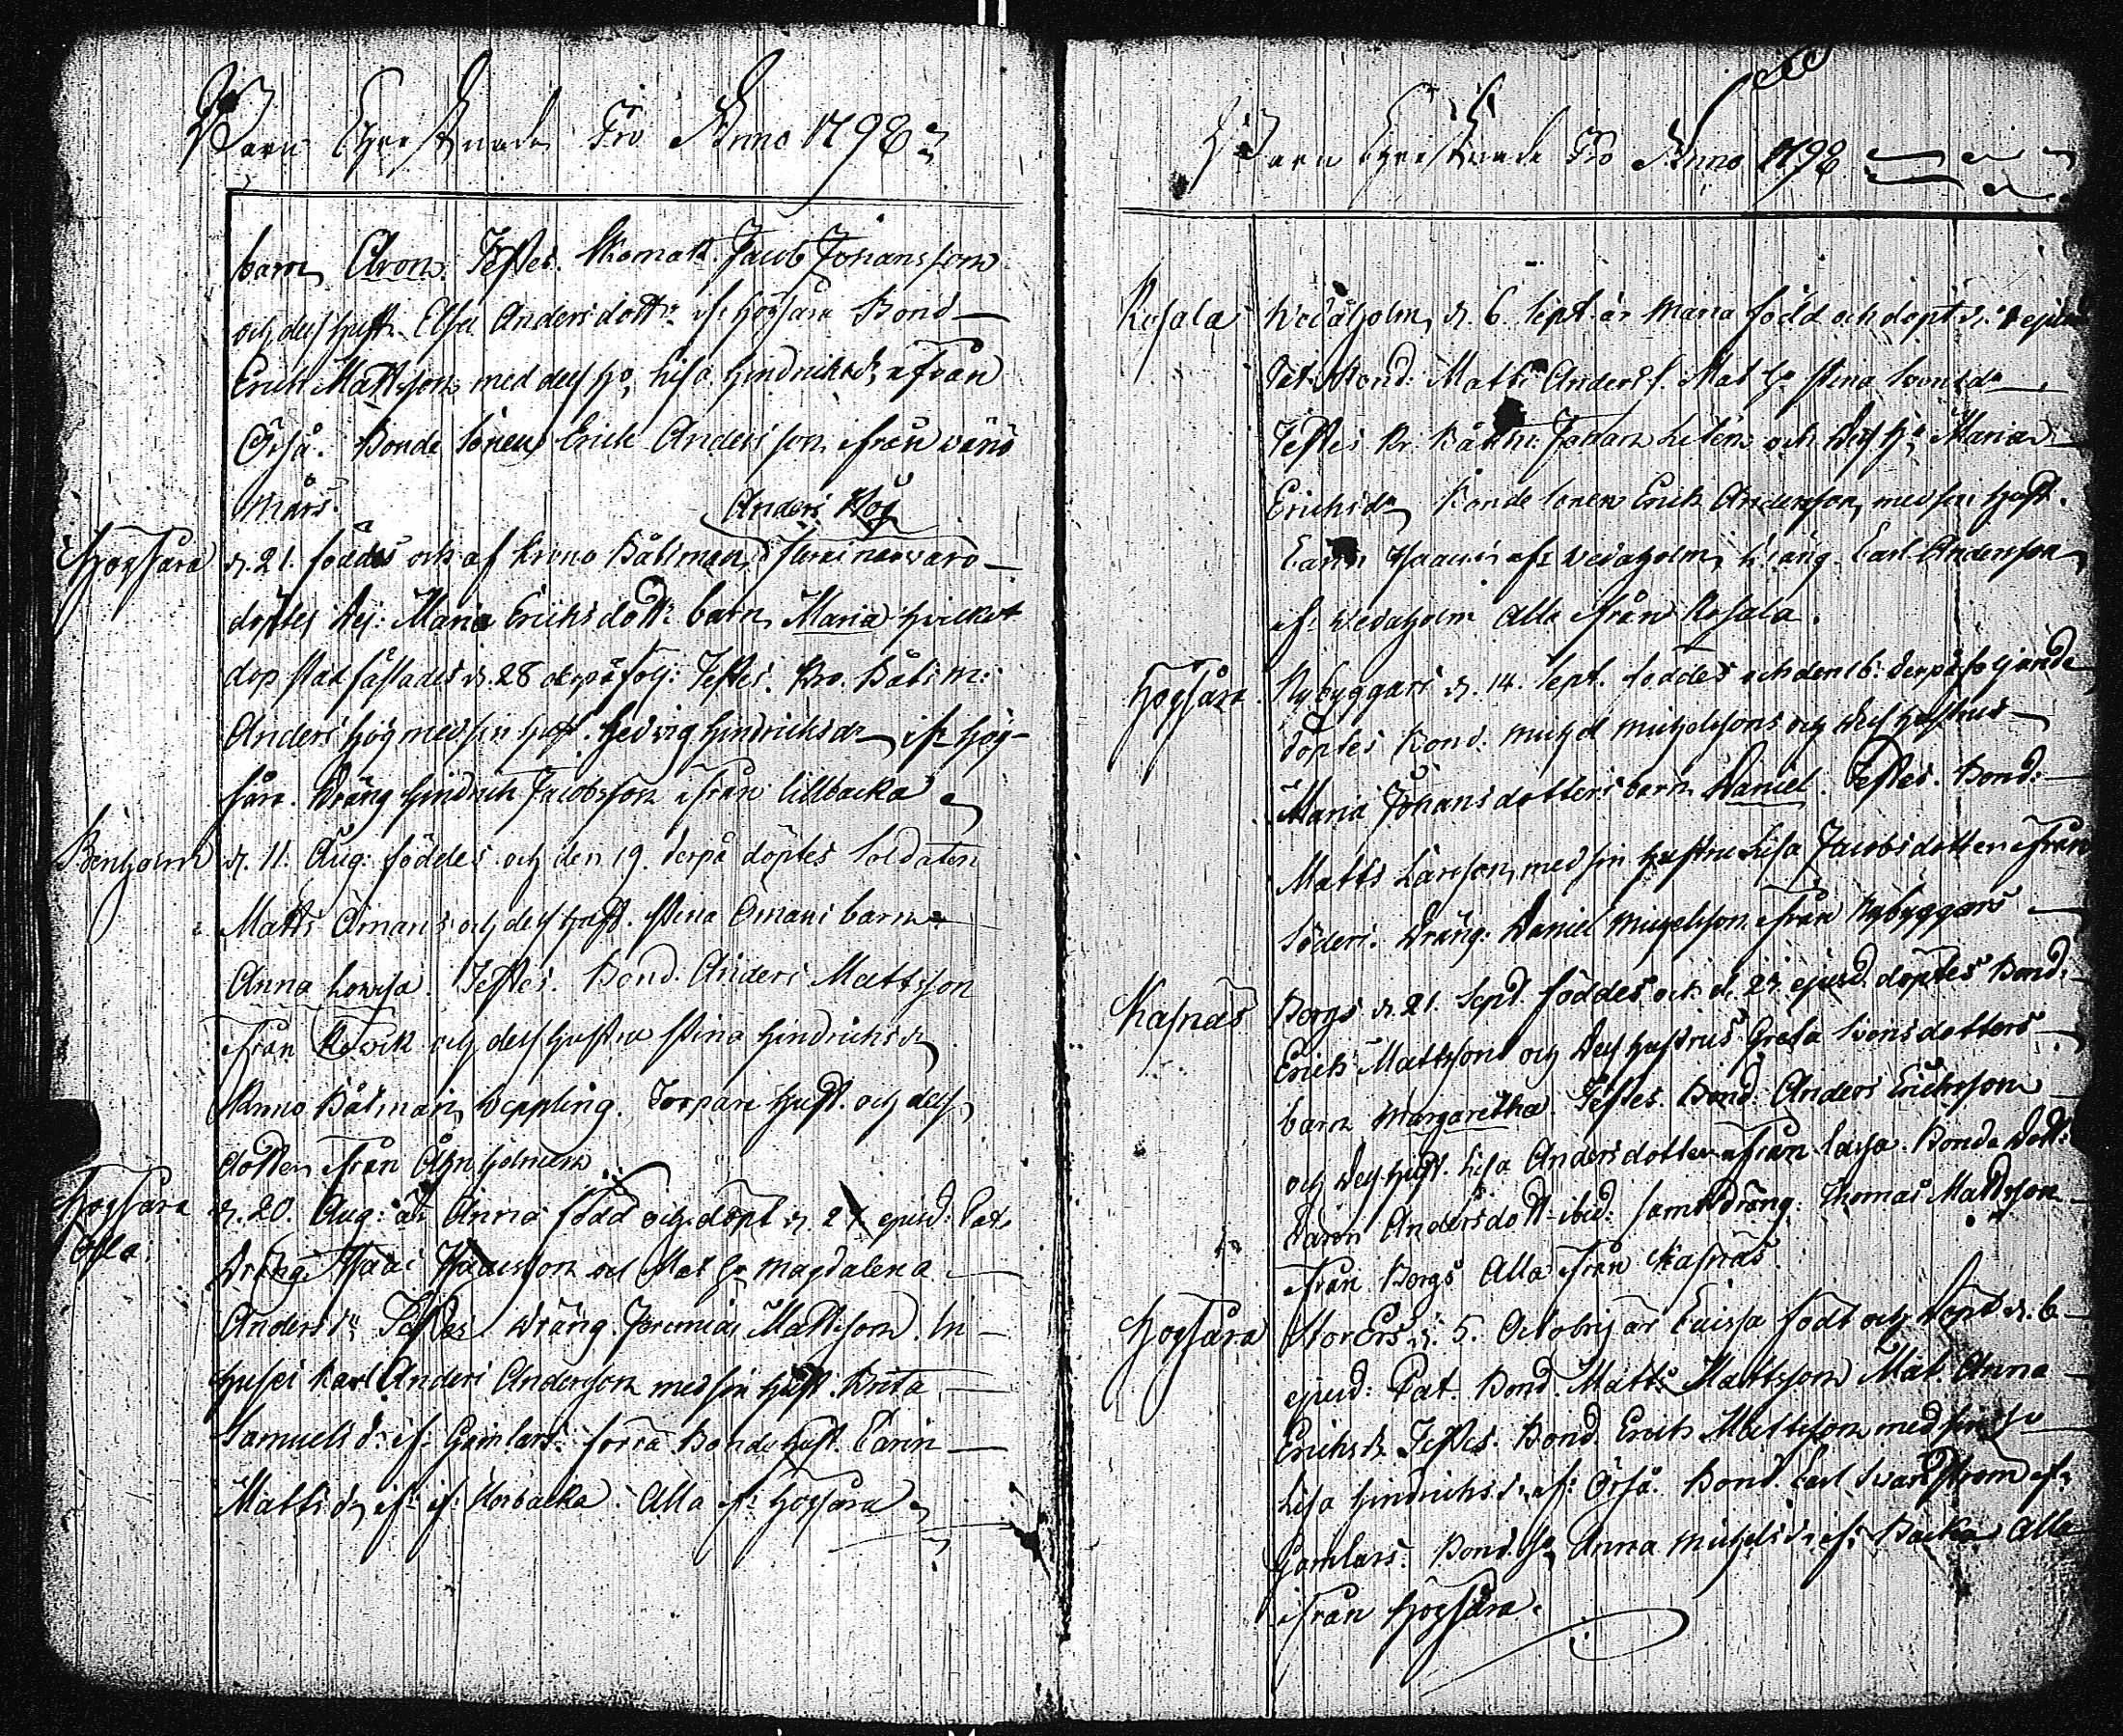 Barn Christnade Pro Anno 1798
barn Aron. Testes. Skomak. Jacob Johansson
och dess hust. Elsa Anders dottr if: Högsara Bond
Erich Mattsson med dess ho Lisa Hindriksdr ifrån
Örså. Bonde Sonen Erich Andersson ifrån
mårs.
Anders Hög
Högsara d. 21. föddes och af Krono Båtsman
döptes Maria Erichsdottr barn Maria hvilket
dop stadfästades d. 28 derpåfölj: Testes. Kro. Båtsm:
Anders Hög med sin hust. Hedvig Hindrichsdr if: Hög-
sara. Dräng Hindrich Jacobsson ifrån lillbacka
Böhholm d. 11. Aug: föddes och den 19. derpå döptes Soldaten
Matts Ömans och dess hust. Stina Ömans barn
Anna Lovisa. Testes. Bond. Anders Mattsson
ifrån och dess hustru Stina Hindrichsdr
Krono Båtsman Weppling. Torpare hust. och dess
dotter ifrån holmen
Högsara d. 20. Aug: är Anna född och döpt d. 27 ejusd: Pat.
Dräng Isaac Isaacsson och Mat. ho Magdalena
Andersdr Testes Dräng. Jeremias Mattsson. In-
hyses Karl Anders Andersson med sin hust. Brita
Samuelsdr if: Gamlars. förra Bonde hust. Carin
Mattsdr if: if: Norbacka. Alla if: Högsara
Barn Christnade Pro Anno 1798
Rosala Wedaholm, d. 6. Sept. är Maria född och döpt d. ejusd
Pat. Bond: Matts Anders s. Mat ho Stina Svensdr
Testes Kr. Båtsm: Johan Liten och dess ho Maria
Erichsdr Bonde Sonen Erich Andersson, med sin hust.
Carin Isaacs af: Wedaholm, Dräng. Carl Andersson
af: Wedaholm Alla ifrån Rosala.
Högsåra Nybyggars d. 14. Sept. föddes och den 16: derpåföljande
döptes Bond. Michel Michelssons och dess hustrus
Maria Johans dotters barn Daniel. Testes. Bond:
Matts Larsson, med sin hustru Lisa Jacobs dotter ifrån
Söders. Dräng: Daniel Michelsson ifrån Nybyggars
Kasnäs Borgs d. 21. Sept. föddes och d. 23. ejusd. döptes Bond.
Erich Mattsson och dess hustrus Greta Svensdotters
barn Margaretha. Testes. Bond. Anders Erichsson
och dess hust. Lisa Andersdotter ifrån Bonde dott:
Carin Andersdott ibid: samt dräng: Thomas Mattsson
ifrån Borgs Alla ifrån Kasnäs.
Högsåra StorErs d. 5. Octobris är Caissa född och döpt d. 6
ejusd: Pat. Bond. Matts Mattsson Mat Anna
Erichsdr. Testes. Bond. Erich Mattsson med sin ho
Lisa Hindrichsdr. if: Örså. Bond. Carl Svardström if:
Gamlars. Bond. ho Anna Michelsdr if: Backa Alla
ifrån Högsåra.